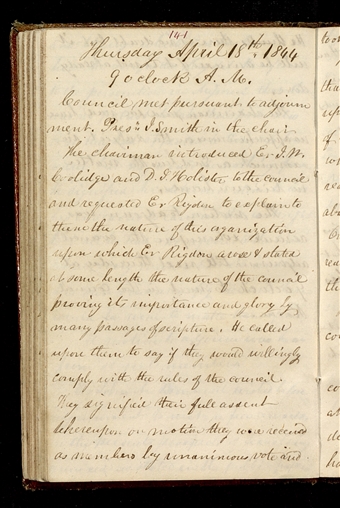 141
Thursday April 18th. 1844
9 oclock A. M.
Council met pursuant to adjourn
ment. Prest. J. Smith in the chair
The chairman introduced Er. J. W.
Coolidge and D. S. Hollister to the council
and requested Er Rigdon to explain to
them the nature of this organization
upon which Er Rigdon arose & stated
at some length the nature of the council
proving its importance and glory by
many passages of scripture. He called
upon them to say if they would willingly
comply with the rules of the council.
They signified their full assent
whereupon on motion they were received
as members by unanimous vote and